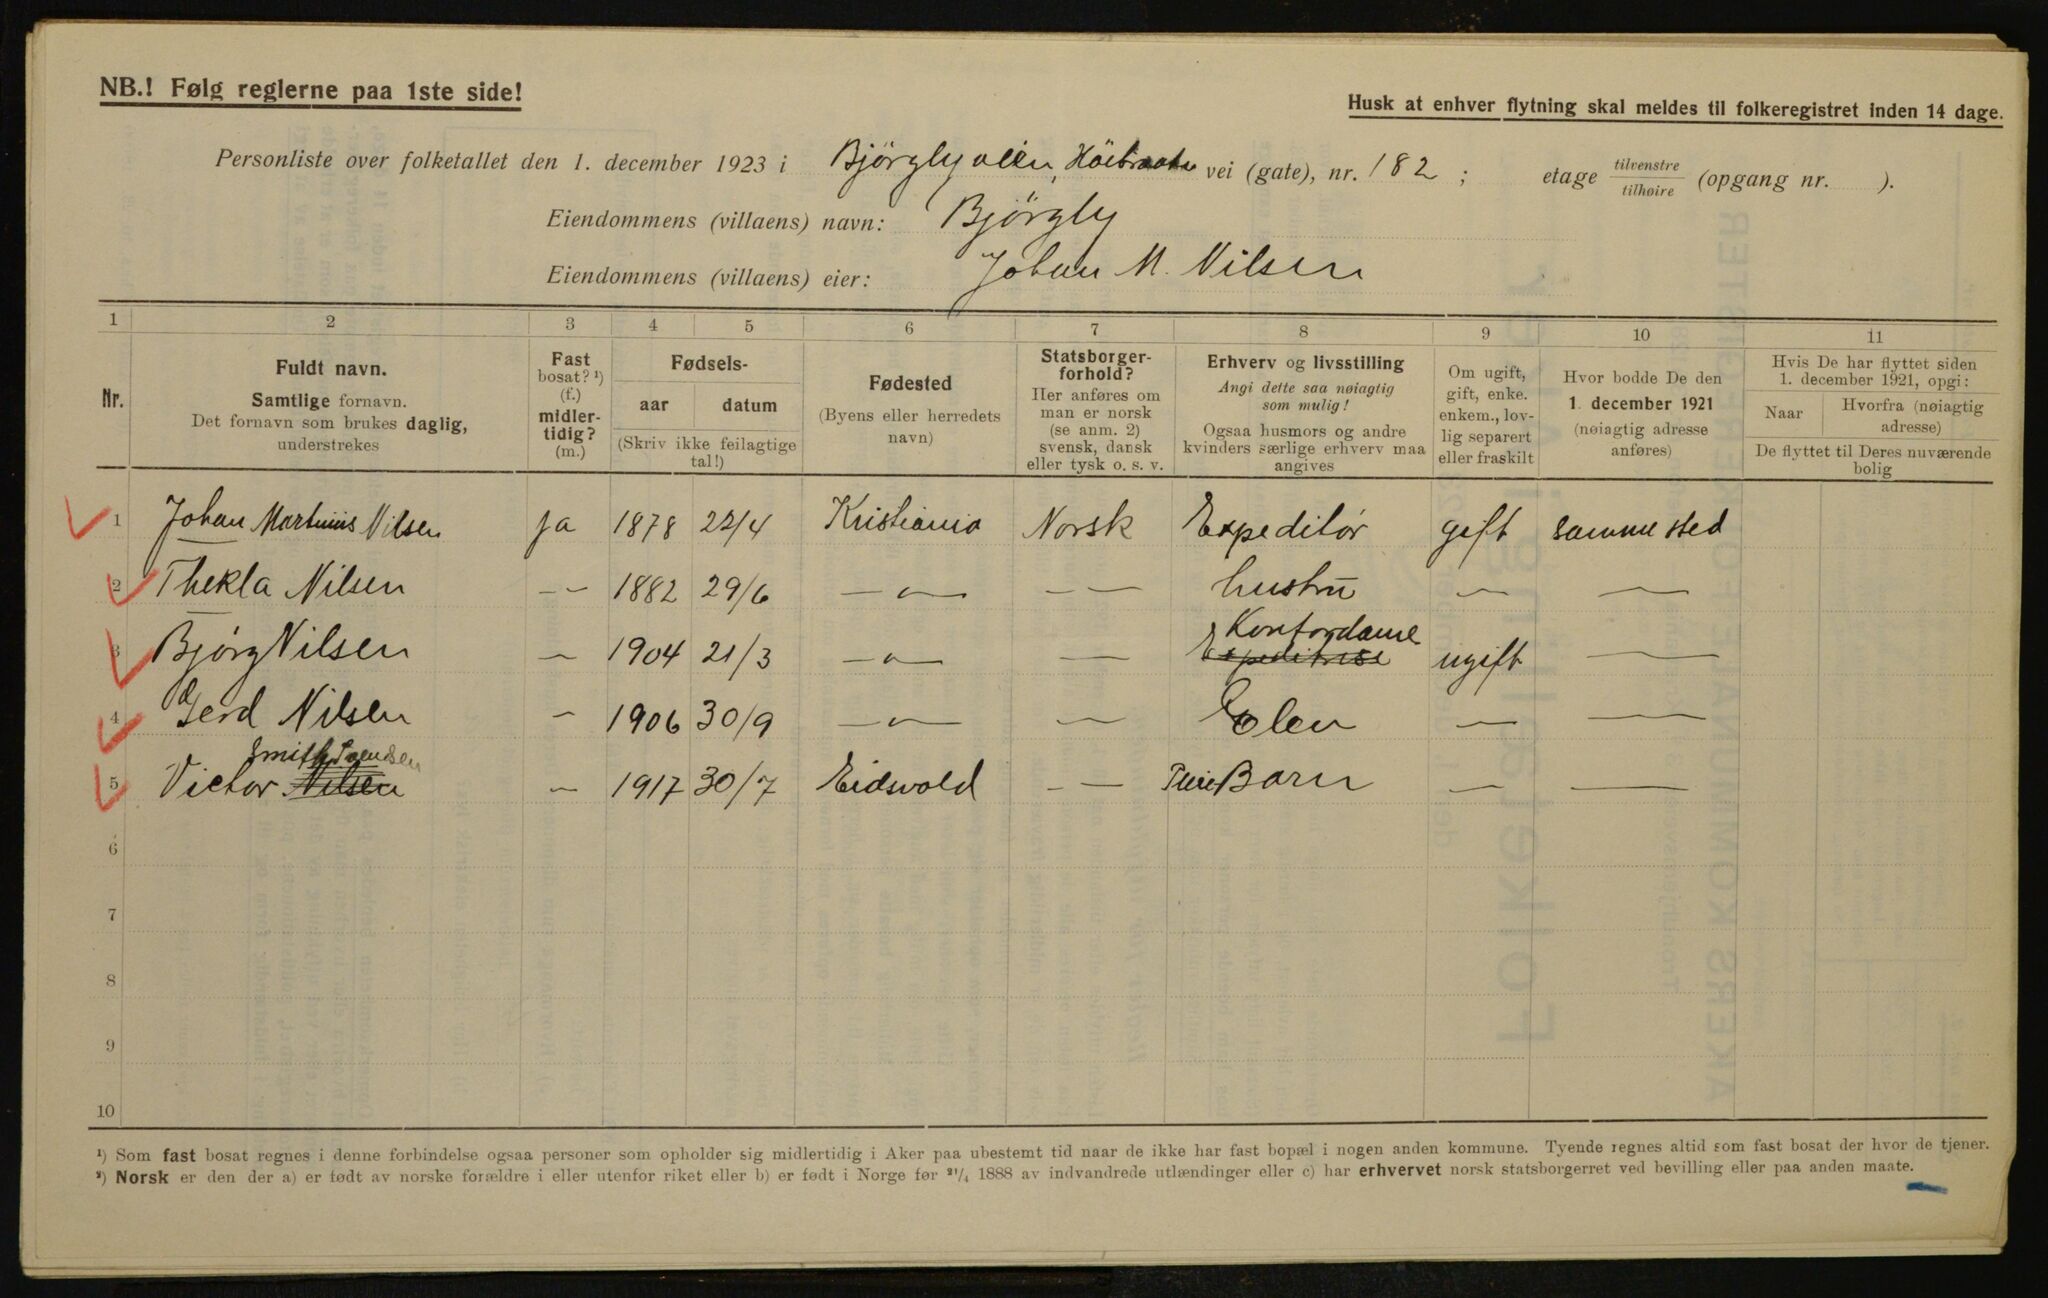 NB.! Følg reglerne paa 1ste side!
Husk at enhver flytning skal meldes til folkeregistret inden 14 dage.
Personliste over folketallet den 1. december 1923 i Bjørgly vei (gate), nr. 182 ; etage tilvenstre tilhøire (opgang nr. ).
Eiendommens (villaens) navn: Bjørgly
Eiendommens (villaens) eier: Johan M. Nilsen
1 2 3 4 5 6 7 8 9 10 11
Nr.
Fuldt navn.
Samtlige fornavn.
Det fornavn som brukes daglig,
understrekes
Fast
bosat? ¹)
(f.)
midler-
tidig?
(m.)
Fødsels-
aar datum
(Skriv ikke feilagtige
tal!)
Fødested
(Byens eller herredets
navn)
Statsborger-
forhold?
Her anføres om
man er norsk
(se anm. 2)
svensk, dansk
eller tysk o. s. v.
Erhverv og livsstilling
Angi dette saa nøiagtig
som mulig!
Ogsaa husmors og andre
kvinders særlige erhverv maa
angives
Om ugift,
gift, enke.
enkem., lov-
lig separert
eller fraskilt
Hvor bodde De den
1. december 1921
(nøiagtig adresse
anføres)
Hvis De har flyttet siden
1. december 1921, opgi:
Naar Hvorfra (nøiagtig
adresse)
De flyttet til Deres nuværende
bolig
1 Johan Martinius Nilsen ja 1878 22/4 Kristiania Norsk Expeditør gift samme sted
2 Thekla Nilsen — 1882 29/6 —"— — hustru — —
3 Bjørg Nilsen — 1904 21/3 —"— — Kontordame Expeditrise ugift —
4 Gerd Nilsen — 1906 30/9 —"— — Elev — —
5 Victor Nilsen Smith — 1917 30/7 Eidsvold — Pleie Barn — —
6
7
8
9
10
¹) Som fast bosat regnes i denne forbindelse ogsaa personer som opholder sig midlertidig i Aker paa ubestemt tid naar de ikke har fast bopæl i nogen anden kommune. Tyende regnes altid som fast bosat der hvor de tjener.
²) Norsk er den der a) er født av norske forældre i eller utenfor riket eller b) er født i Norge før ²¹/₄ 1888 av indvandrede utlændinger eller c) har erhvervet norsk statsborgerret ved bevilling eller paa anden maate.